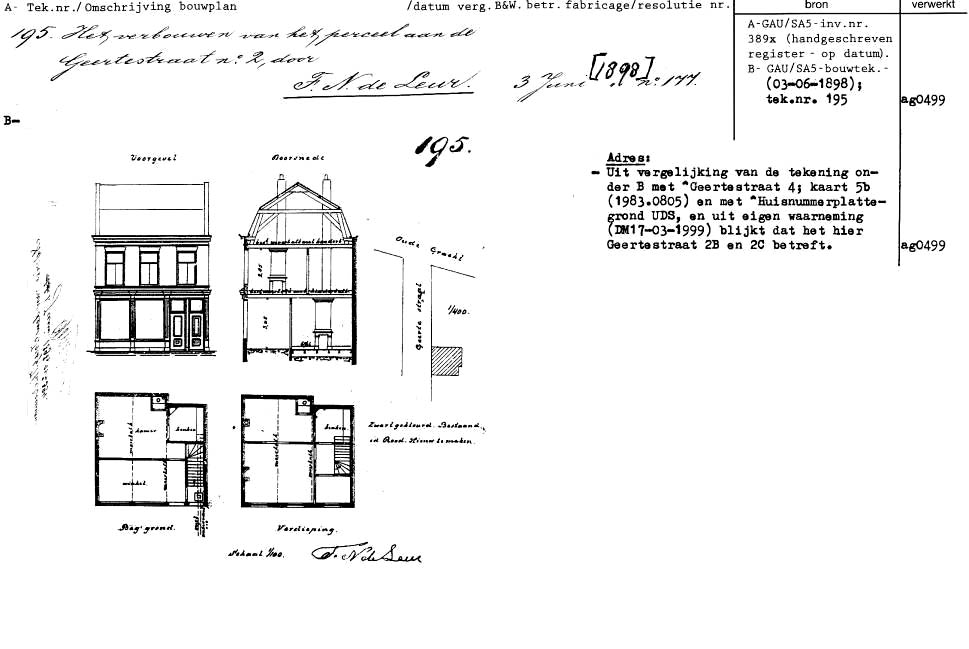 A- Tek.nr./ Omschrijving bouwplan /datum verg. B&W. betr. fabricage/resolutie nr. bron verwerkt
195. Het verbouwen van het perceel aan de
Geertestraat nº 2, door
F. N. de Leur.
3 Juni [1898] nº 177.
A-GAU/SA5-inv.nr.
389x (handgeschreven
register - op datum).
B- GAU/SA5-bouwtek.-
(03-06-1898);
tek.nr. 195
ag0499
B-
195.
Adres:
- Uit vergelijking van de tekening on-
der B met *Geertestraat 4; kaart 5b
(1983.0805) en met *Huisnummerplatte-
grond UDS, en uit eigen waarneming
(DM17-03-1999) blijkt dat het hier
Geertestraat 2B en 2C betreft.
ag0499
Voorgevel
Doorsnede
Oude Gracht
Geerte straat
1/400.
kamer
keuken
winkel
keuken
Zwart gekleurd. Bestaand
id Rood. Nieuw te maken.
Beg. grond.
Verdieping.
Schaal 1/100.
F. N. de Leur